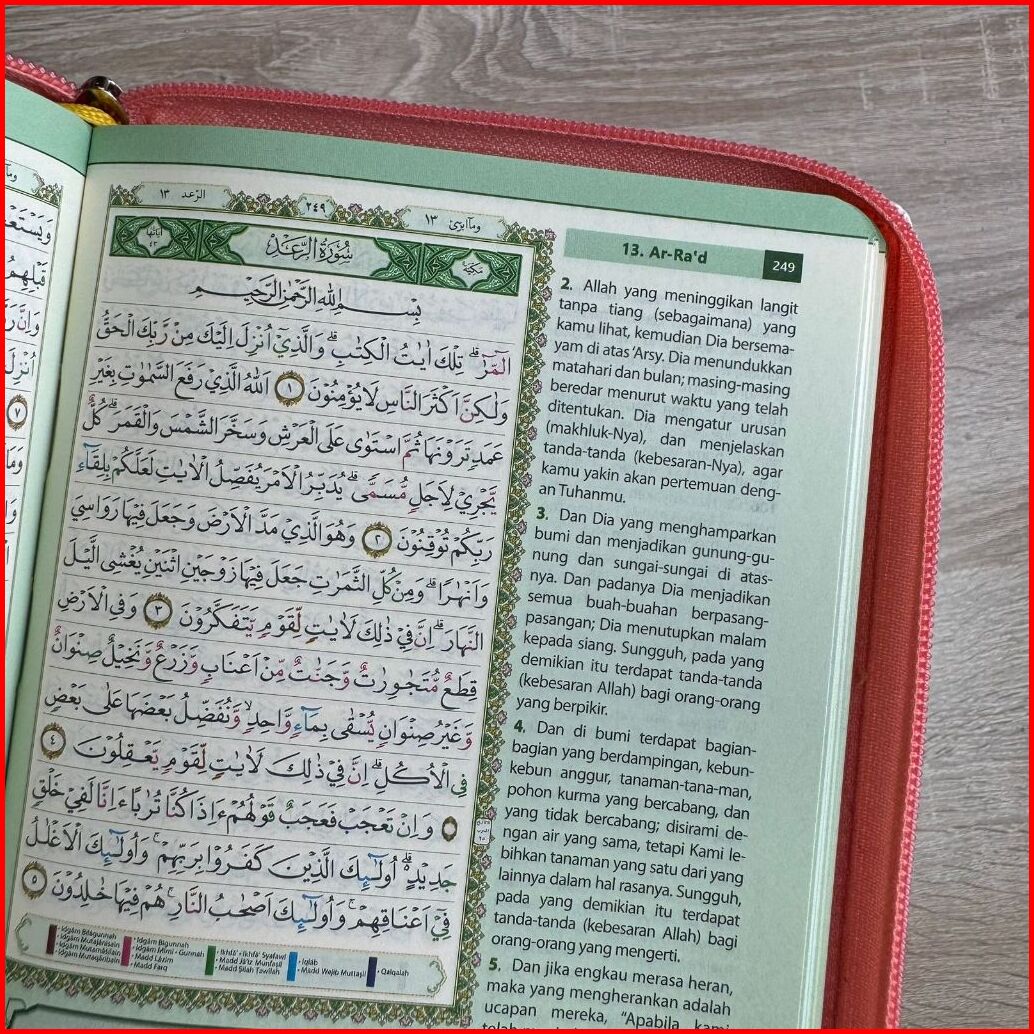 الرّعد ١٣
٢٤٩
وماابرئ ١٣
اٰيَاتُهَا ٤٣
سُوْرَةُ الرَّعْدِ
مَكِّيَّة
بِسْمِ اللّٰهِ الرَّحْمٰنِ الرَّحِيْمِ
الۤمّۤرٰ ۗ تِلْكَ اٰيٰتُ الْكِتٰبِ ۗ وَالَّذِيْٓ اُنْزِلَ اِلَيْكَ مِنْ رَّبِّكَ الْحَقُّ
وَلٰكِنَّ اَكْثَرَ النَّاسِ لَا يُؤْمِنُوْنَ ١ اَللّٰهُ الَّذِيْ رَفَعَ السَّمٰوٰتِ بِغَيْرِ
عَمَدٍ تَرَوْنَهَا ثُمَّ اسْتَوٰى عَلَى الْعَرْشِ وَسَخَّرَ الشَّمْسَ وَالْقَمَرَ ۗ كُلٌّ
يَّجْرِيْ لِاَجَلٍ مُّسَمًّى ۗ يُدَبِّرُ الْاَمْرَ يُفَصِّلُ الْاٰيٰتِ لَعَلَّكُمْ بِلِقَاۤءِ
رَبِّكُمْ تُوْقِنُوْنَ ٢ وَهُوَ الَّذِيْ مَدَّ الْاَرْضَ وَجَعَلَ فِيْهَا رَوَاسِيَ
وَاَنْهٰرًا ۗ وَمِنْ كُلِّ الثَّمَرٰتِ جَعَلَ فِيْهَا زَوْجَيْنِ اثْنَيْنِ يُغْشِى الَّيْلَ
النَّهَارَ ۗ اِنَّ فِيْ ذٰلِكَ لَاٰيٰتٍ لِّقَوْمٍ يَّتَفَكَّرُوْنَ ٣ وَفِى الْاَرْضِ
قِطَعٌ مُّتَجٰوِرٰتٌ وَّجَنّٰتٌ مِّنْ اَعْنَابٍ وَّزَرْعٌ وَّنَخِيْلٌ صِنْوَانٌ
وَّغَيْرُ صِنْوَانٍ يُّسْقٰى بِمَاۤءٍ وَّاحِدٍ ۙ وَّنُفَضِّلُ بَعْضَهَا عَلٰى بَعْضٍ
فِى الْاُكُلِ ۗ اِنَّ فِيْ ذٰلِكَ لَاٰيٰتٍ لِّقَوْمٍ يَّعْقِلُوْنَ ٤
وَاِنْ تَعْجَبْ فَعَجَبٌ قَوْلُهُمْ ءَاِذَا كُنَّا تُرٰبًا ءَاِنَّا لَفِيْ خَلْقٍ
جَدِيْدٍ ۗ اُولٰۤىِٕكَ الَّذِيْنَ كَفَرُوْا بِرَبِّهِمْ ۚ وَاُولٰۤىِٕكَ الْاَغْلٰلُ
فِيْٓ اَعْنَاقِهِمْ ۚ وَاُولٰۤىِٕكَ اَصْحٰبُ النَّارِ ۚ هُمْ فِيْهَا خٰلِدُوْنَ ٥
• Idgām Bilāgunnah
• Idgām Mutajānisain
• Idgām Mutamāṡilain
• Idgām Mutaqāribain
• Idgām Bigunnah
• Idgām Mīmī • Gunnah
• Madd Lāzim
• Madd Farq
• Ikhfā' • Ikhfā' Syafawī
• Madd Jā'iz Munfaṣil
• Madd Ṣilah Ṭawīlah
• Iqlāb
• Madd Wajib Muttaṣil
• Qalqalah
13. Ar-Ra'd
249
2. Allah yang meninggikan langit
tanpa tiang (sebagaimana) yang
kamu lihat, kemudian Dia bersema-
yam di atas ‘Arsy. Dia menundukkan
matahari dan bulan; masing-masing
beredar menurut waktu yang telah
ditentukan. Dia mengatur urusan
(makhluk-Nya), dan menjelaskan
tanda-tanda (kebesaran-Nya), agar
kamu yakin akan pertemuan deng-
an Tuhanmu.
3. Dan Dia yang menghamparkan
bumi dan menjadikan gunung-gu-
nung dan sungai-sungai di atas-
nya. Dan padanya Dia menjadikan
semua buah-buahan berpasang-
pasangan; Dia menutupkan malam
kepada siang. Sungguh, pada yang
demikian itu terdapat tanda-tanda
(kebesaran Allah) bagi orang-orang
yang berpikir.
4. Dan di bumi terdapat bagian-
bagian yang berdampingan, kebun-
kebun anggur, tanaman-tana-man,
pohon kurma yang bercabang, dan
yang tidak bercabang; disirami de-
ngan air yang sama, tetapi Kami le-
bihkan tanaman yang satu dari yang
lainnya dalam hal rasanya. Sungguh,
pada yang demikian itu terdapat
tanda-tanda (kebesaran Allah) bagi
orang-orang yang mengerti.
5. Dan jika engkau merasa heran,
maka yang mengherankan adalah
ucapan mereka, “Apabila kami